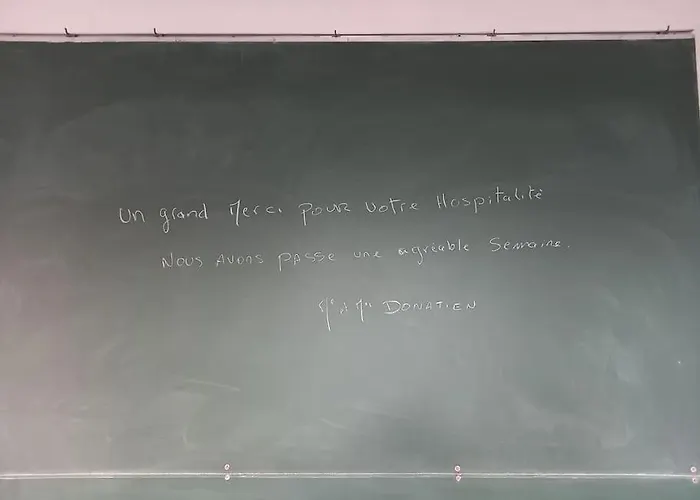 Un grand Merci pour votre Hospitalité
Nous avons passe une agréable Semaine.
DONATIEN